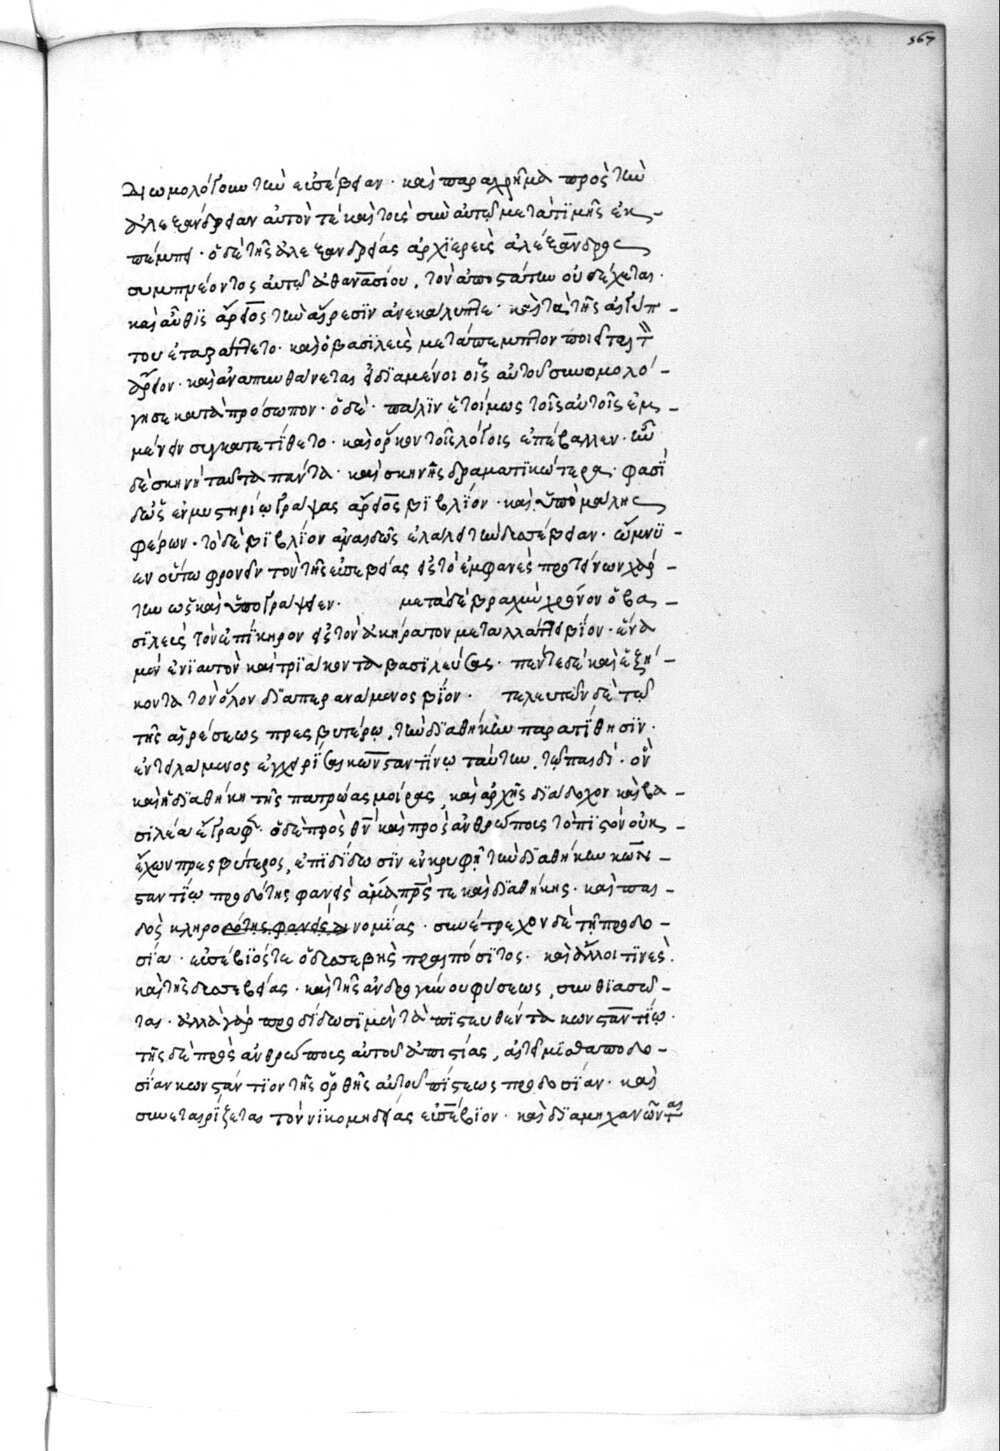 367
διωμολόγουν τὴν εὐσέβειαν · καὶ παραχρῆμα πρὸς τὴν
ἀλεξάνδρειαν αὐτόν τε καὶ τοὺς σὺν αὐτῶ μετὰ τιμῆς ἐκ-
πέμπει · ὁ δὲ τῆς ἀλεξανδρείας ἀρχιερεὺς ἀλέξανδρος
συμπνέοντος αὐτῶ ἀθανασίου, τὸν ἀποστάτην οὐ δέχεται ·
καὶ αὖθις ἄρειος τὴν αἵρεσιν ἀνεκάλυπτε · καὶ τὰ τῆς αἰγύπ-
του ἐταράττετο · καὶ ὁ βασιλεὺς μετάπεμπτον ποιεῖται τὸν
ἄρειον · καὶ ἀναπυνθάνεται εἰ διαμένοι οἷς αὐτοῦ συνομολό-
γησε κατὰ πρόσωπον · ὁ δὲ · πάλιν ἑτοίμως τοῖς αὐτοῖς ἐμ-
μένειν συγκατετίθετο · καὶ ὅρκον τοῖς λόγοις ἐπέβαλλεν · ἦν
δὲ σκηνὴ ταῦτα πάντα · καὶ σκηνῆς δραματικώτερα · φασὶ
δὡς ἐν μυστηρίω γράψας ἄρειος βιβλίον · καὶ ὑπὸ μάλης
φέρων · τὸ δὲ βιβλίον ἀναιδῶς ἐλάλει τὴν δυσσέβειαν · ὤμνυ-
εν οὕτω φρονεῖν τὸν τῆς εὐσεβείας εἰς τὸ ἐμφανὲς προτείνων χάρ-
την ὡς καὶ ὑπογράψειεν · μετὰ δὲ βραχὺν χρόνον ὁ βα-
σιλεὺς τὸν ἐπίκηρον εἰς τὸν ἀκήρατον μεταλλάττει βίον · ἕνα
μὲν ἐνιαυτὸν καὶ τριάκοντα βασιλεύσας · πέντε δὲ καὶ ἑξή-
κοντα τὸν ὅλον διαπερανάμενος βίον · τελευτῶν δὲ τῶ
τῆς αἱρέσεως πρεσβυτέρω, τὴν διαθήκην παρατίθησιν ·
ἐντειλάμενος ἐγχειρίσαι κωνσταντίνω ταύτην, τῶ παιδί · ὃν
καὶ ἡ διαθήκη τῆς πατρώας μοίρας, καὶ ἀρχῆς διάδοχον καὶ βα-
σιλέα ἔγραφε · ὁ δὲ πρὸς θν καὶ πρὸς ἀνθρώπους τὸ πιστὸν οὐκ
ἔχων πρεσβύτερος, ἐπιδίδωσιν ἐν κρυφῆ τὴν διαθήκην κων-
σταντίω προδότης φανεὶς ἅμα πρς τε καὶ διαθήκης · καὶ παι-
δὸς κληρονομίας · συνέτρεχον δὲ τῆ προδο-
σία · εὐσέβιός τε ὁ δυσσεβὴς πραιπόσιτος · καὶ ἄλλοι τινὲς ·
καὶ τῆς δυσσεβείας · καὶ τῆς ἀνδρογύνου φύσεως, συνθιασῶ-
ται · ἀλλὰ γὰρ προδίδωσι μὲν τὰ πιστευθέντα κωνσταντίω ·
τῆς δὲ πρὸς ἀνθρώπους αὐτοῦ ἀπιστίας, αἰτεῖ μισθαποδο-
σίαν κωνστάντιον τῆς ὀρθῆς αὐτοῦ πίστεως προδοσίαν · καὶ
συνεταιρίζεται τὸν νικομηδείας εὐσέβιον · καὶ διαμηχανῶνται